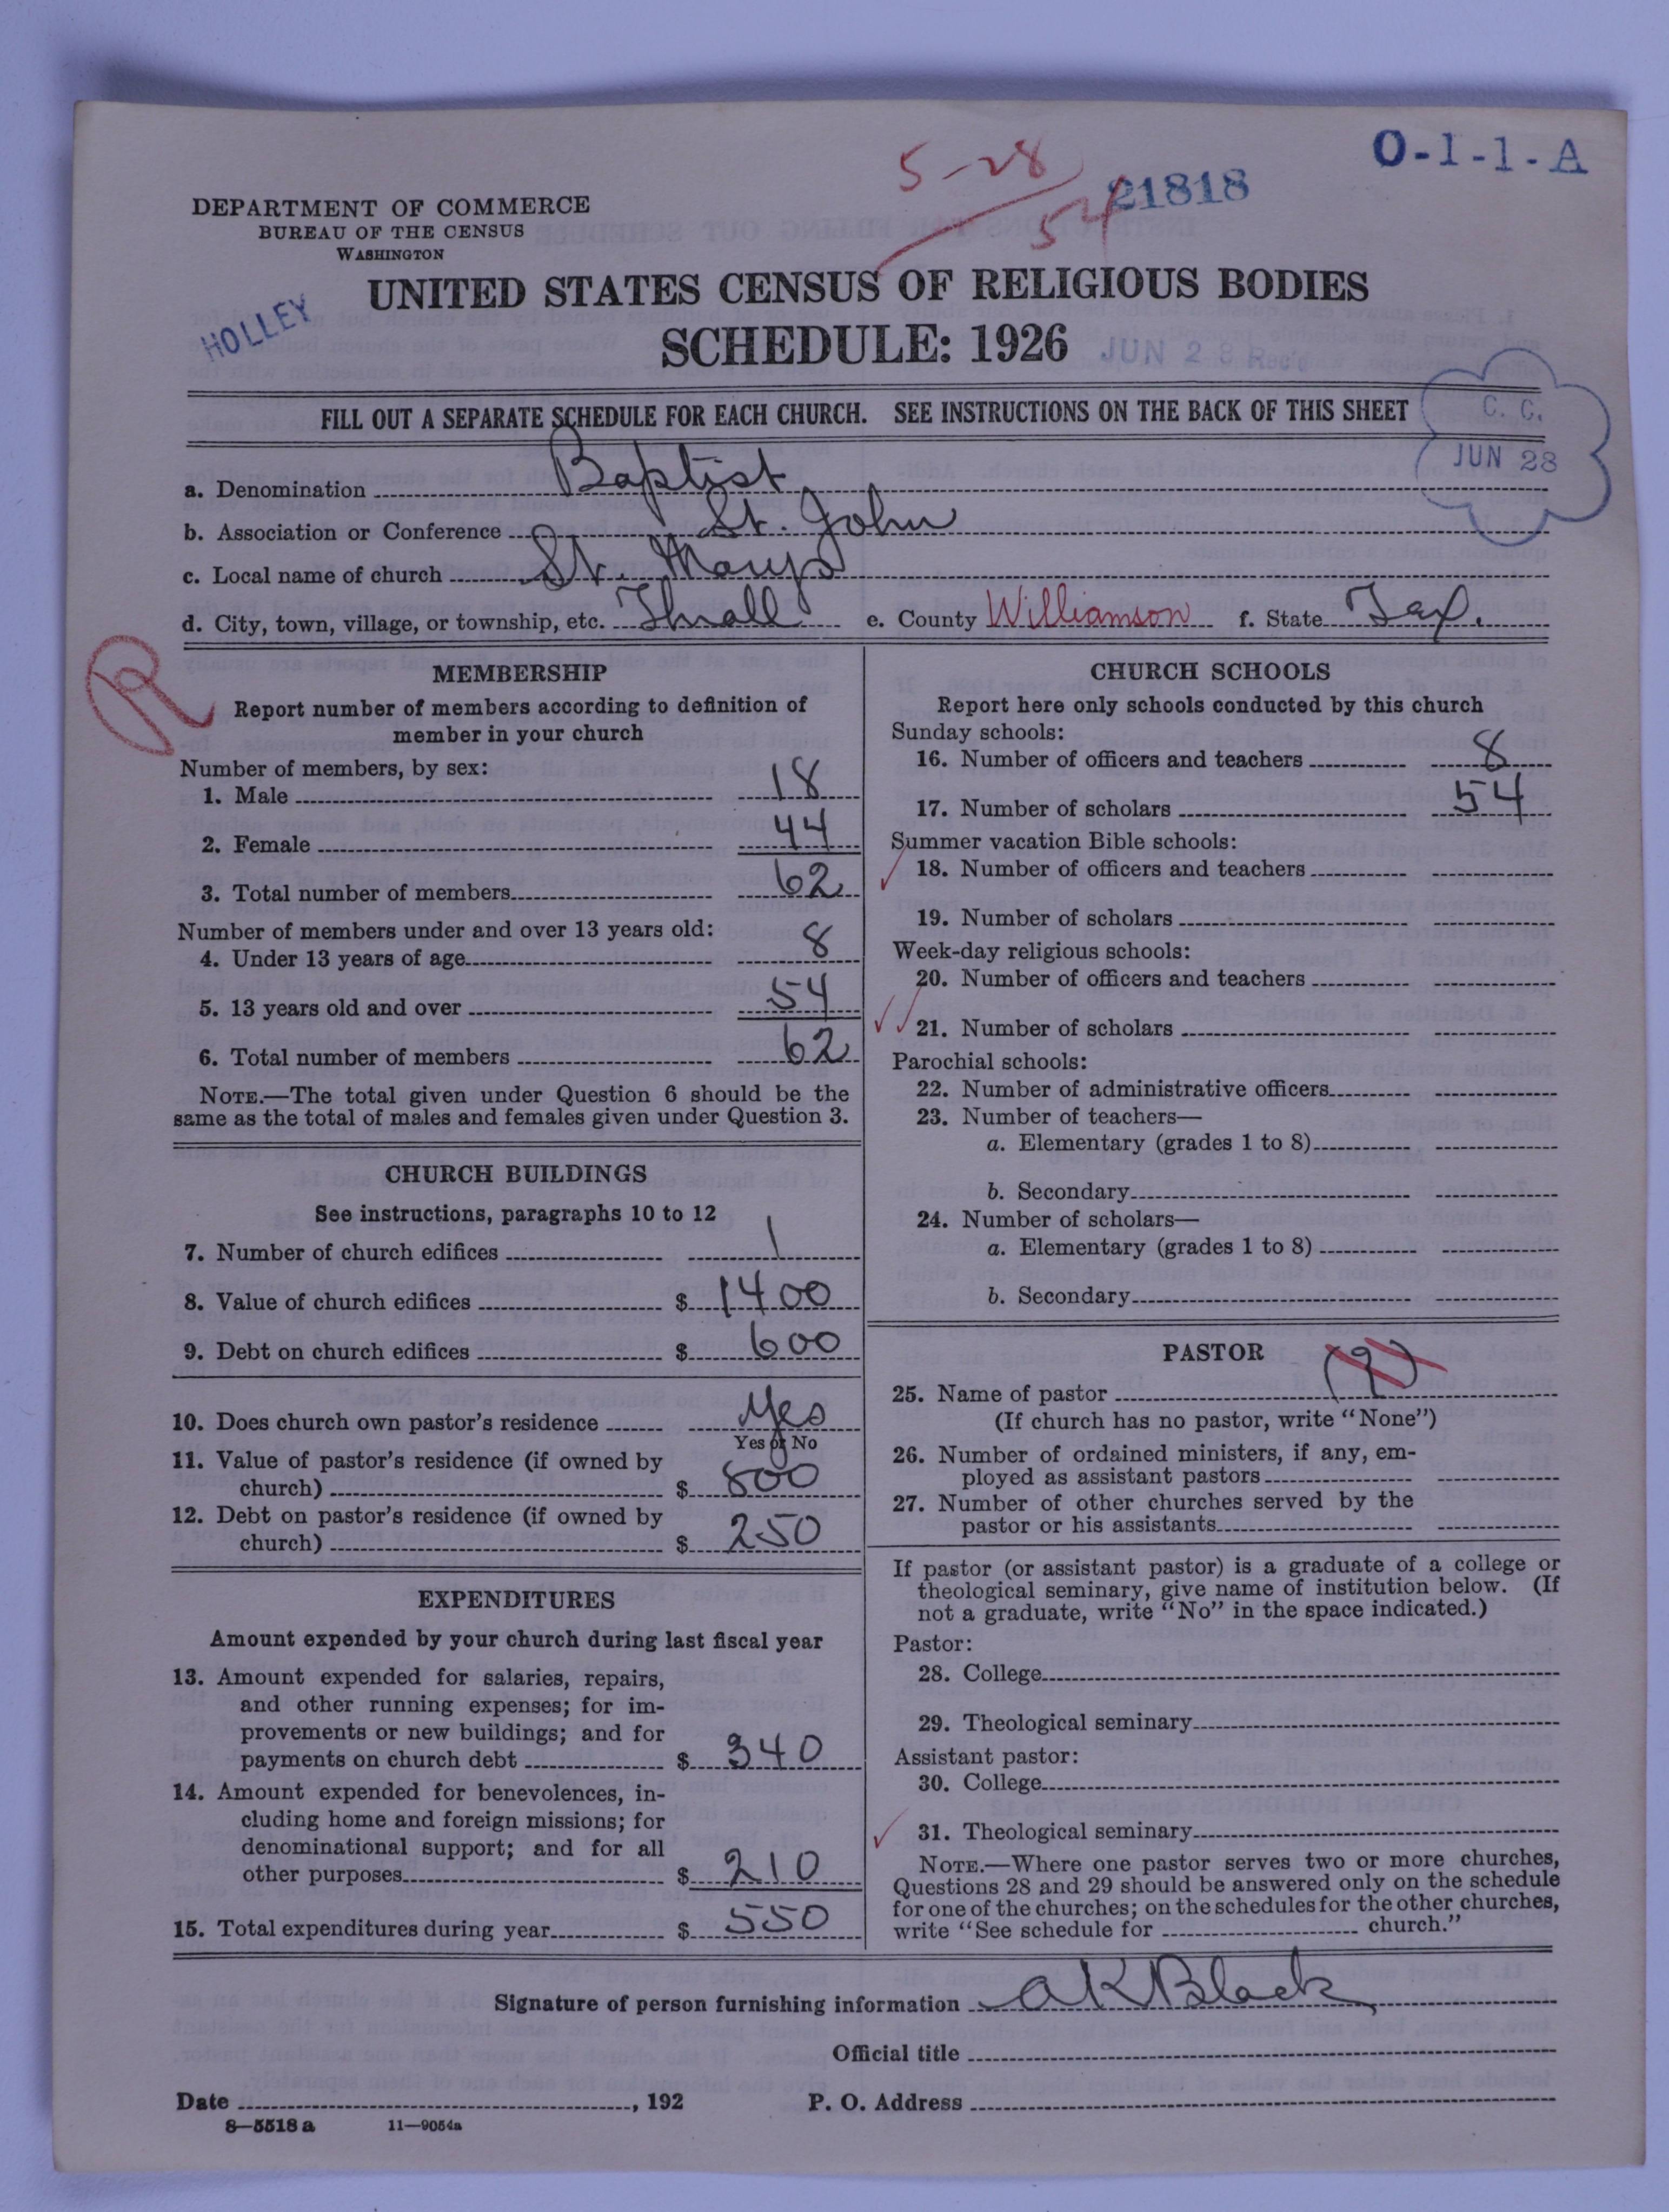 5-28
54
21818
O-1-1-A
DEPARTMENT OF COMMERCE
BUREAU OF THE CENSUS
WASHINGTON
UNITED STATES CENSUS OF RELIGIOUS BODIES
HOLLEY
SCHEDULE: 1926
JUN 28 Rec'd
FILL OUT A SEPARATE SCHEDULE FOR EACH CHURCH. SEE INSTRUCTIONS ON THE BACK OF THIS SHEET
C. C.
JUN 28
a. Denomination Baptist
b. Association or Conference St. John
c. Local name of church St. Marys
d. City, town, village, or township, etc. Thrall e. County Williamson f. State Tex.
R
MEMBERSHIP
Report number of members according to definition of
member in your church
Number of members, by sex:
1. Male 18
2. Female 44
3. Total number of members 62
Number of members under and over 13 years old:
4. Under 13 years of age 8
5. 13 years old and over 54
6. Total number of members 62
NOTE.—The total given under Question 6 should be the
same as the total of males and females given under Question 3.
CHURCH BUILDINGS
See instructions, paragraphs 10 to 12
7. Number of church edifices 1
8. Value of church edifices $ 1400
9. Debt on church edifices $ 600
10. Does church own pastor's residence Yes
Yes or No
11. Value of pastor's residence (if owned by
church) $ 800
12. Debt on pastor's residence (if owned by
church) $ 250
EXPENDITURES
Amount expended by your church during last fiscal year
13. Amount expended for salaries, repairs,
and other running expenses; for im-
provements or new buildings; and for
payments on church debt $ 340
14. Amount expended for benevolences, in-
cluding home and foreign missions; for
denominational support; and for all
other purposes $ 210
15. Total expenditures during year $ 550
CHURCH SCHOOLS
Report here only schools conducted by this church
Sunday schools:
16. Number of officers and teachers 8
17. Number of scholars 54
Summer vacation Bible schools:
18. Number of officers and teachers
19. Number of scholars
Week-day religious schools:
20. Number of officers and teachers
21. Number of scholars
Parochial schools:
22. Number of administrative officers
23. Number of teachers—
a. Elementary (grades 1 to 8)
b. Secondary
24. Number of scholars—
a. Elementary (grades 1 to 8)
b. Secondary
PASTOR
25. Name of pastor (9)
(If church has no pastor, write "None")
26. Number of ordained ministers, if any, em-
ployed as assistant pastors
27. Number of other churches served by the
pastor or his assistants
If pastor (or assistant pastor) is a graduate of a college or
theological seminary, give name of institution below. (If
not a graduate, write "No" in the space indicated.)
Pastor:
28. College
29. Theological seminary
Assistant pastor:
30. College
31. Theological seminary
NOTE.—Where one pastor serves two or more churches,
Questions 28 and 29 should be answered only on the schedule
for one of the churches; on the schedules for the other churches,
write "See schedule for church."
Signature of person furnishing information A K Black
Official title
Date , 192 P. O. Address
8—5518 a 11—9054a